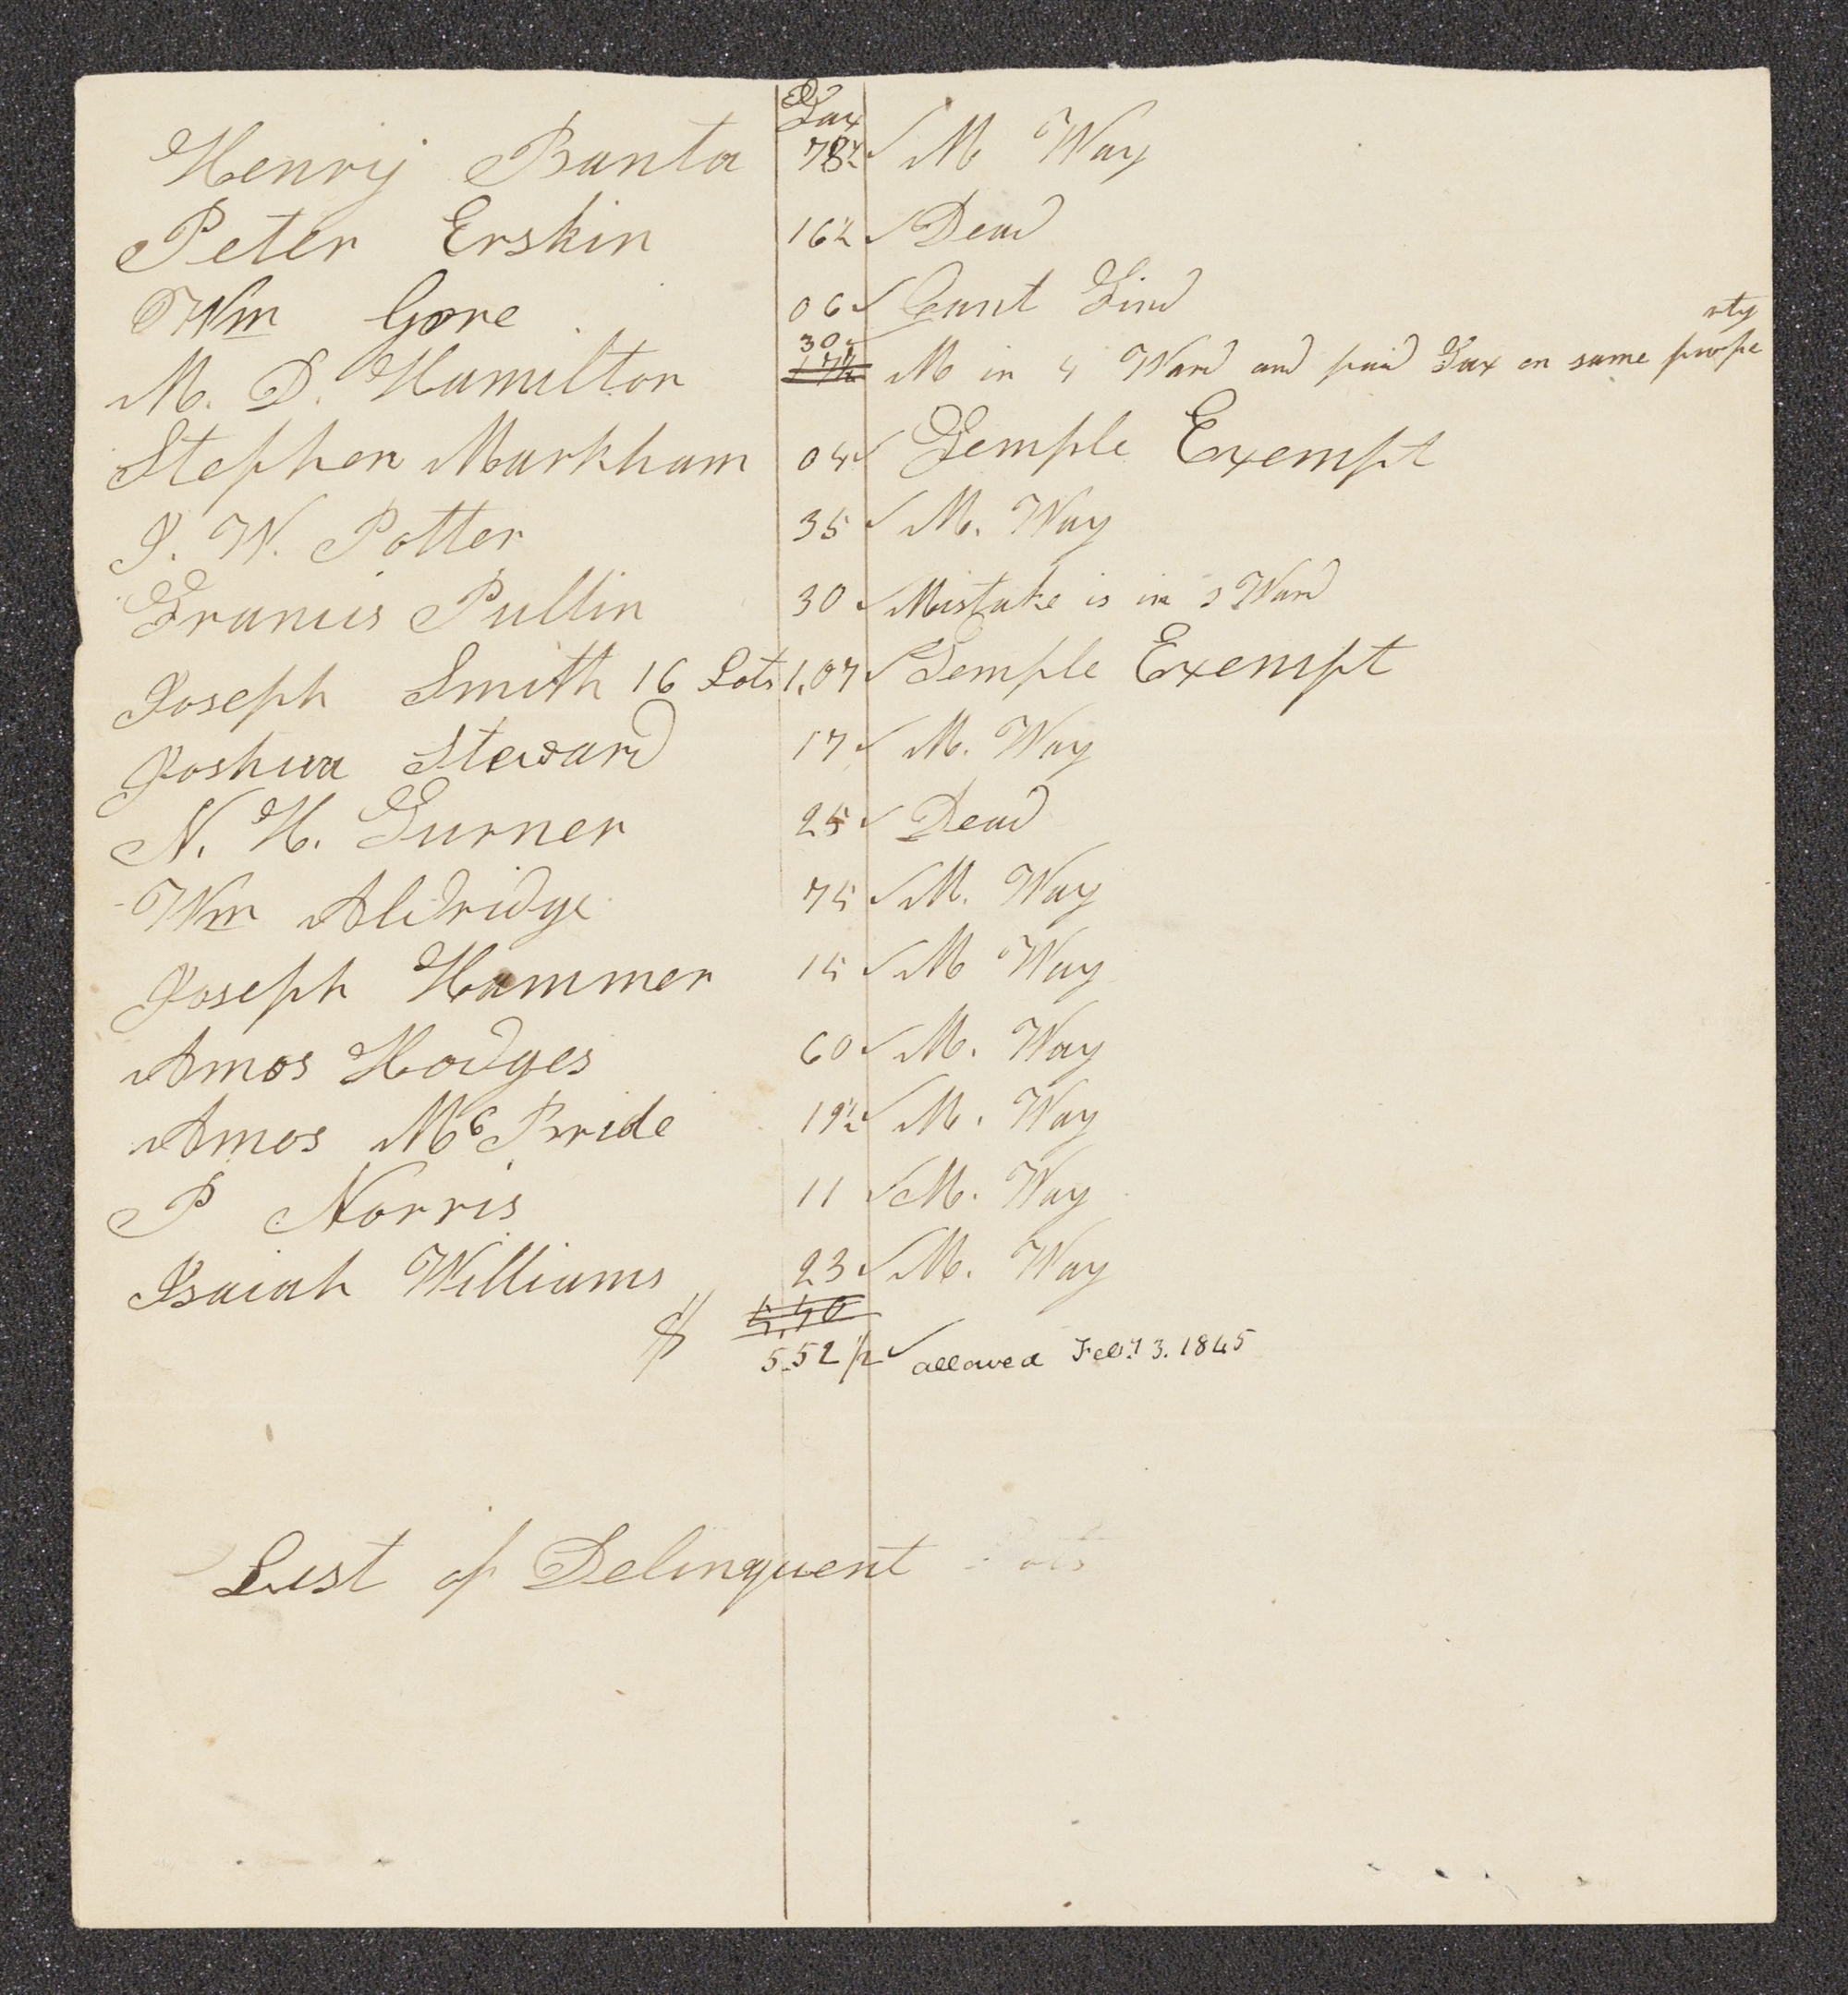 Tax
Henry Banta 78½ ✓ M Way
Peter Erskin 16½ ✓ Dead
Wm Gore 06 ✓ Cant Find
M. D. Hamilton 30 ✓ 17½ M in 4 Ward and paid Tax on same property
Stephen Markham 04 ✓ Temple Exempt
J. W. Potter 35 ✓ M. Way
Francis Pullin 30 ✓ Mistake is in 3 Ward
Joseph Smith 16 Lots 1,07 ✓ Temple Exempt
Joshua Steward 17 ✓ M. Way
N. H. Turner 25 ✓ Dead
Wm Aldridge 75 ✓ M. Way
Joseph Hammer 15 ✓ M Way
Amos Hodges 60 ✓ M. Way
Amos McBride 19½ ✓ M. Way
P Norris 11 ✓ M. Way
Isaiah Williams 23 ✓ M. Way
$ 5,40
5.52 1/2 ✓ allowed Feby. 3. 1845
List of Delinquent